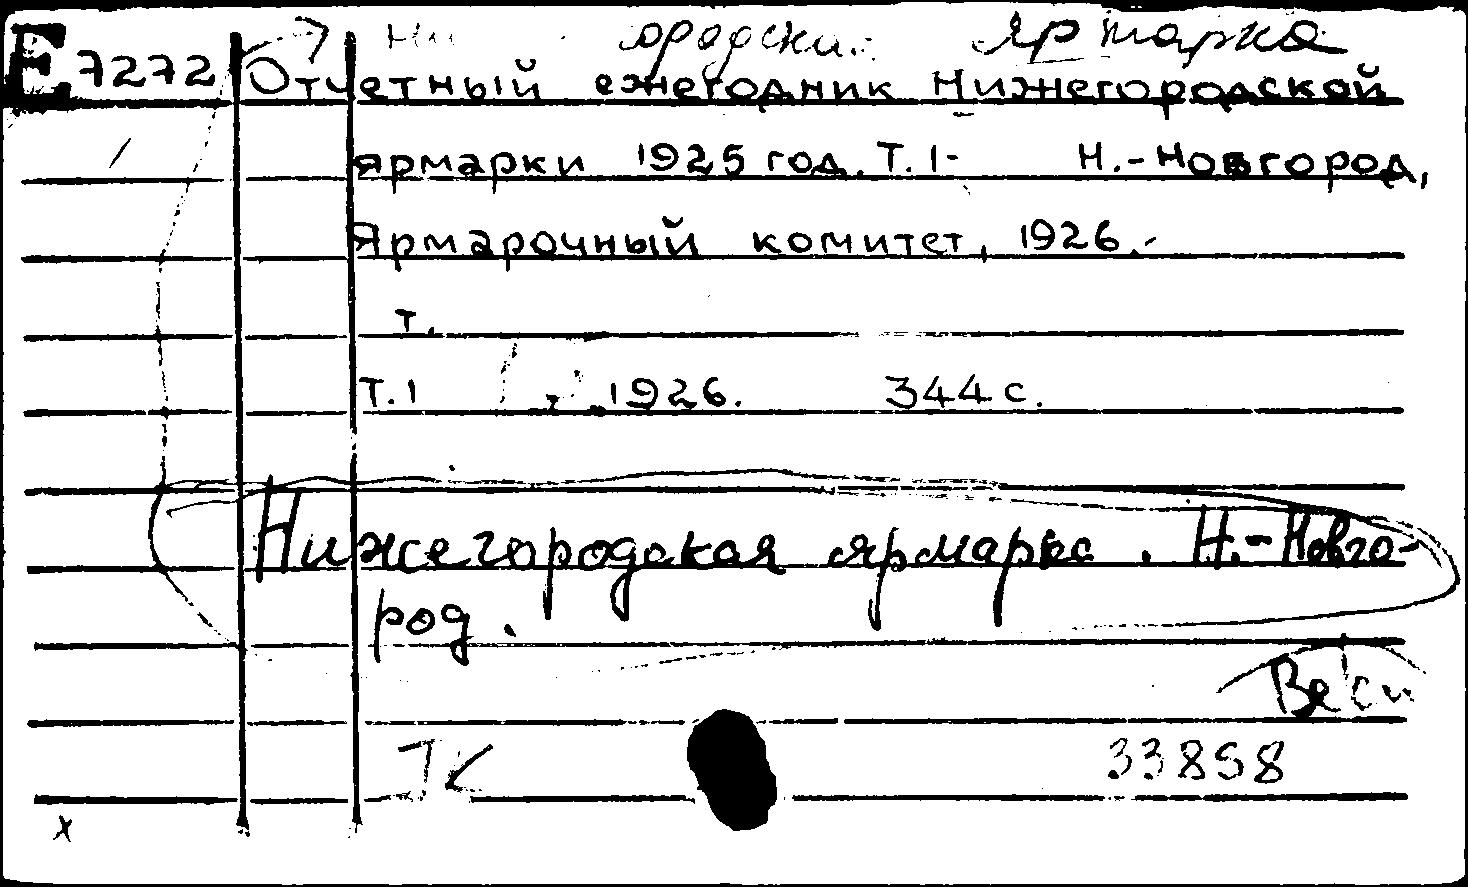 ярмарка
E 7272 Отчетный ежегодник Нижегородской
ярмарки 1925 год. Т.1- Н.-Новгород,
Ярмарочный комитет, 1926.-
т.
Т.1 1926. 344 с.
Нижегородская ярмарка. Н.-Новго-
род.
33858
х